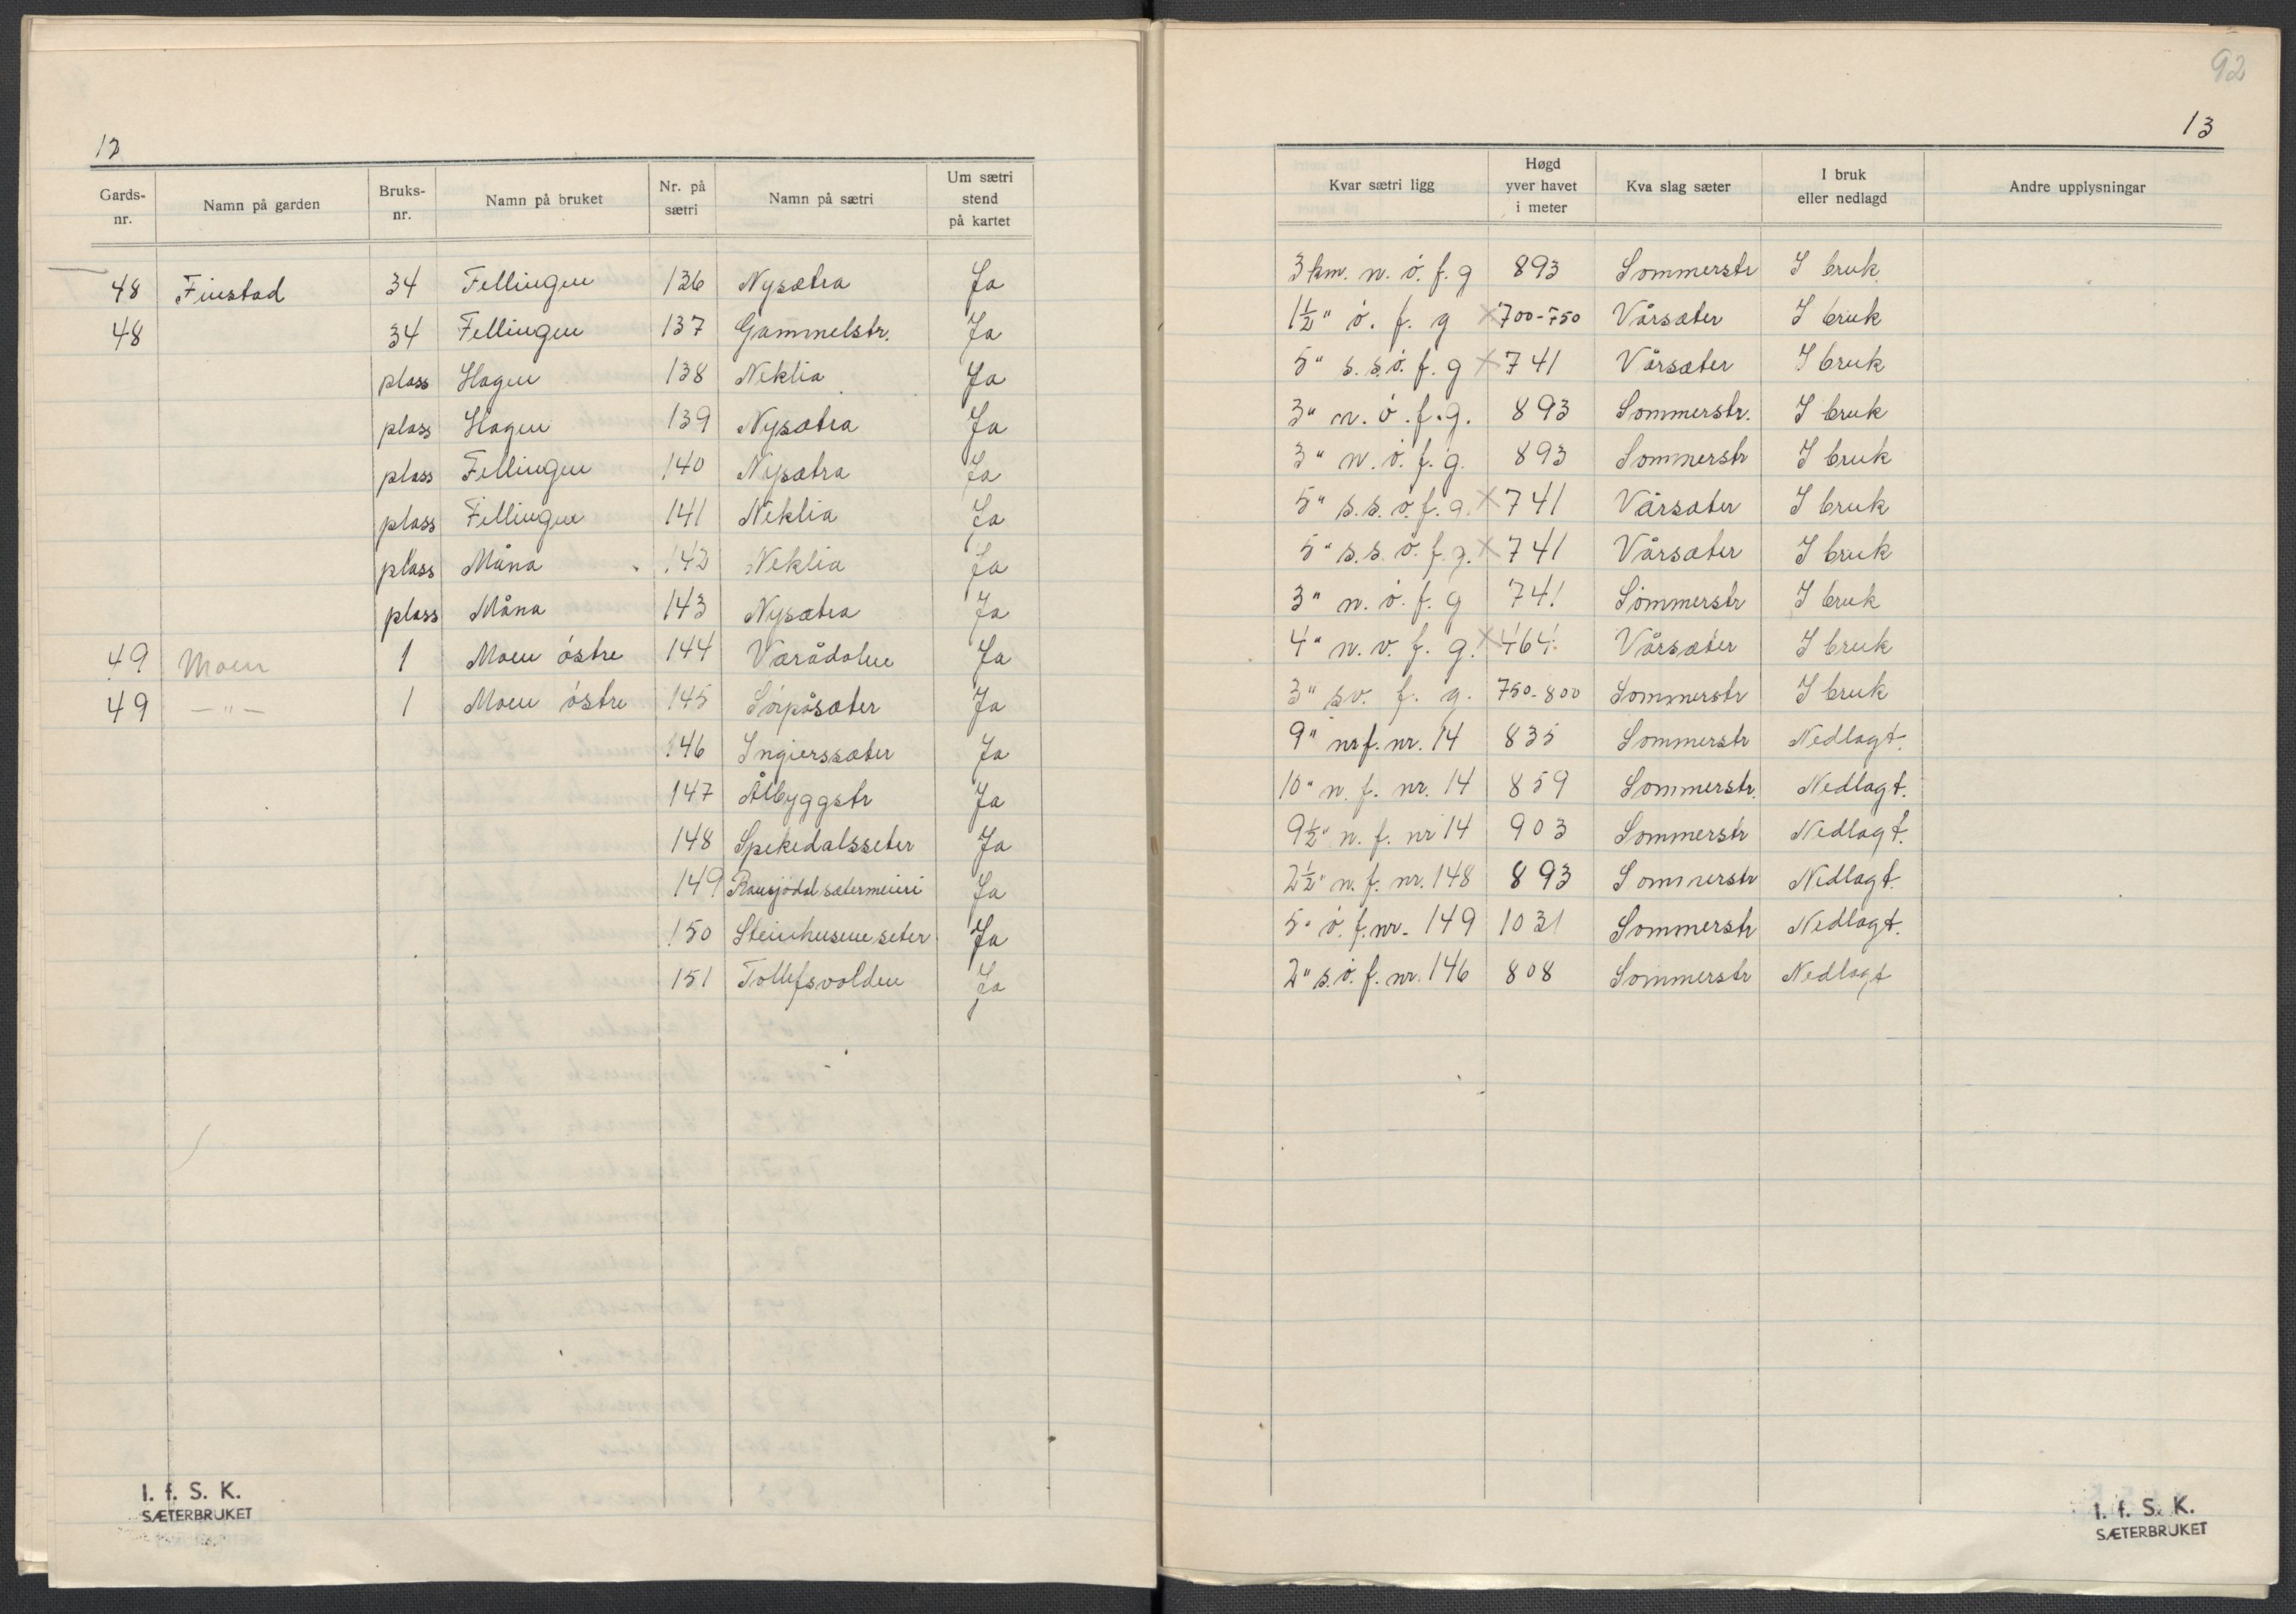 12
Gards-nr. Namn på garden Bruks-nr. Namn på bruket Nr. på sætri Namn på sætri Um sætri stend på kartet
48 Finstad 34 Fellingen 136 Nysætra Ja
48 34 Fellingen 137 Gammelstr. Ja
plass Hagen 138 Neklia Ja
plass Hagen 139 Nysætra Ja
plass Fellingen 140 Nysætra Ja
plass Fellingen 141 Neklia Ja
plass Måna 142 Neklia Ja
plass Måna 143 Nysætra Ja
49 Moen 1 Moen östre 144 Værådalen Ja
49 —"— 1 Moen östre 145 Sörpåsæter Ja
146 Ingierssæter Ja
147 Ålbyggstr Ja
148 Spekedalsseter Ja
149 Rausjödal sætermeieri Ja
150 Steinhusene seter Ja
151 Tollefsvolden Ja
I. f. S. K.
SÆTERBRUKET
92
13
Kvar sætri ligg Høgd yver havet i meter Kva slag sæter I bruk eller nedlagd Andre upplysningar
3 km. n. ö. f. g 893 Sommerstr I bruk
1½" ö. f. g ×700-750 Vårsæter I bruk
5" s. s. ö. f. g ×741 Vårsæter I bruk
3" n. ö. f. g. 893 Sommerstr. I bruk
3" n. ö. f. g. 893 Sommerstr I bruk
5" s. s. ö. f. g. ×741 Vårsæter I bruk
5" s. s. ö. f. g. ×741 Vårsæter I bruk
3" n. ö. f. g 741 Sommerstr I bruk
4" n. v. f. g. ×464 Vårsæter I bruk
3" sv. f. g. 750-800 Sommerstr I bruk
9" n f. nr. 14 835 Sommerstr Nedlagt.
10" n. f. nr. 14 859 Sommerstr. Nedlagt.
9½" n. f. nr 14 903 Sommerstr Nedlagt.
2½" n. f. nr. 148 893 Sommerstr Nedlagt.
5" ö. f. nr. 149 1031 Sommerstr Nedlagt.
2" s. ö. f. nr. 146 808 Sommerstr Nedlagt
I. f. S. K.
SÆTERBRUKET